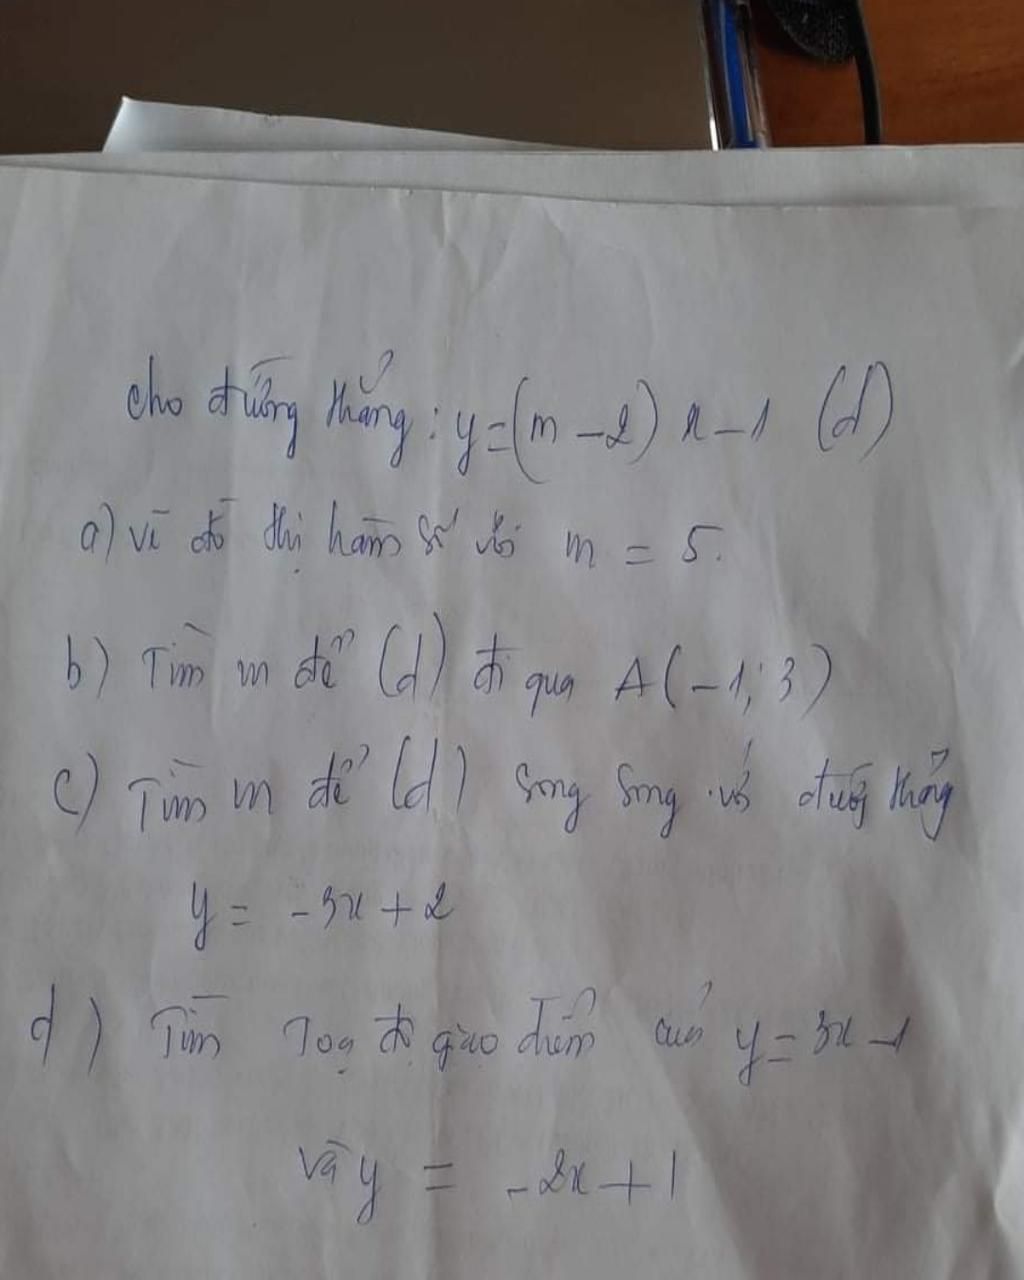 cho đường thẳng: y=(m-2)x-1 (d)
a) vẽ đồ thị hàm số với m = 5.
b) Tìm m để (d) đi qua A(-1; 3)
c) Tìm m để (d) song song với đường thẳng
y = -3x+2
d) Tìm Toạ độ giao điểm của y=3x-1
và y = -2x+1